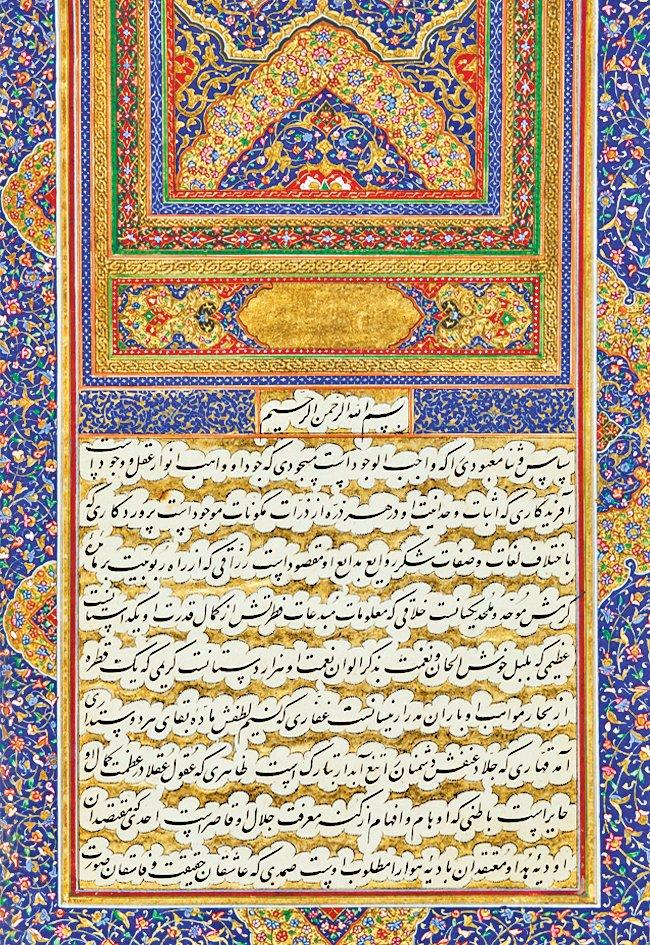 بسم الله الرحمن الرحیم
سپاس و ثنا معبودی را که واجب الوجود است مسجودی که جود او واهب انوار عقل و وجود است
آفریدگاری که اثبات وحدانیت او در هر ذره از ذرات مکونات موجود است پروردگاری که
باختلاف لغات و صفات شکر روایع بدایع او مقصود است رزاقی که از راه ربوبیت بر
کرمش موحد و ملحد یکسانست خلاقی که معلومات مبدعات فطرتش از کمال قدرت و یکداستانست
عظیمی که بلبل خوش الحان نعمت بذکر الوان نعمت او هزار دستانست کریمی که یک قطره
از بحار مواهب او باران مدرار نیسانست غفاری که نسیم لطفش ماده بقای هر دوست
آمد قهاری که جلاد عنفش دشمنان را تیغ آبدار است ظاهری که عقول عقلا در عظمت کمال او
حایر است باطنی که اوهام و افهام از کنه معرفت جلال او قاصر است احدی که مقتصدان
اودیهٔ هدا و معتقدان بادیهٔ هوا را مطلوب اوست صمدی که عاشقان حقیقت و فاسقان صورت